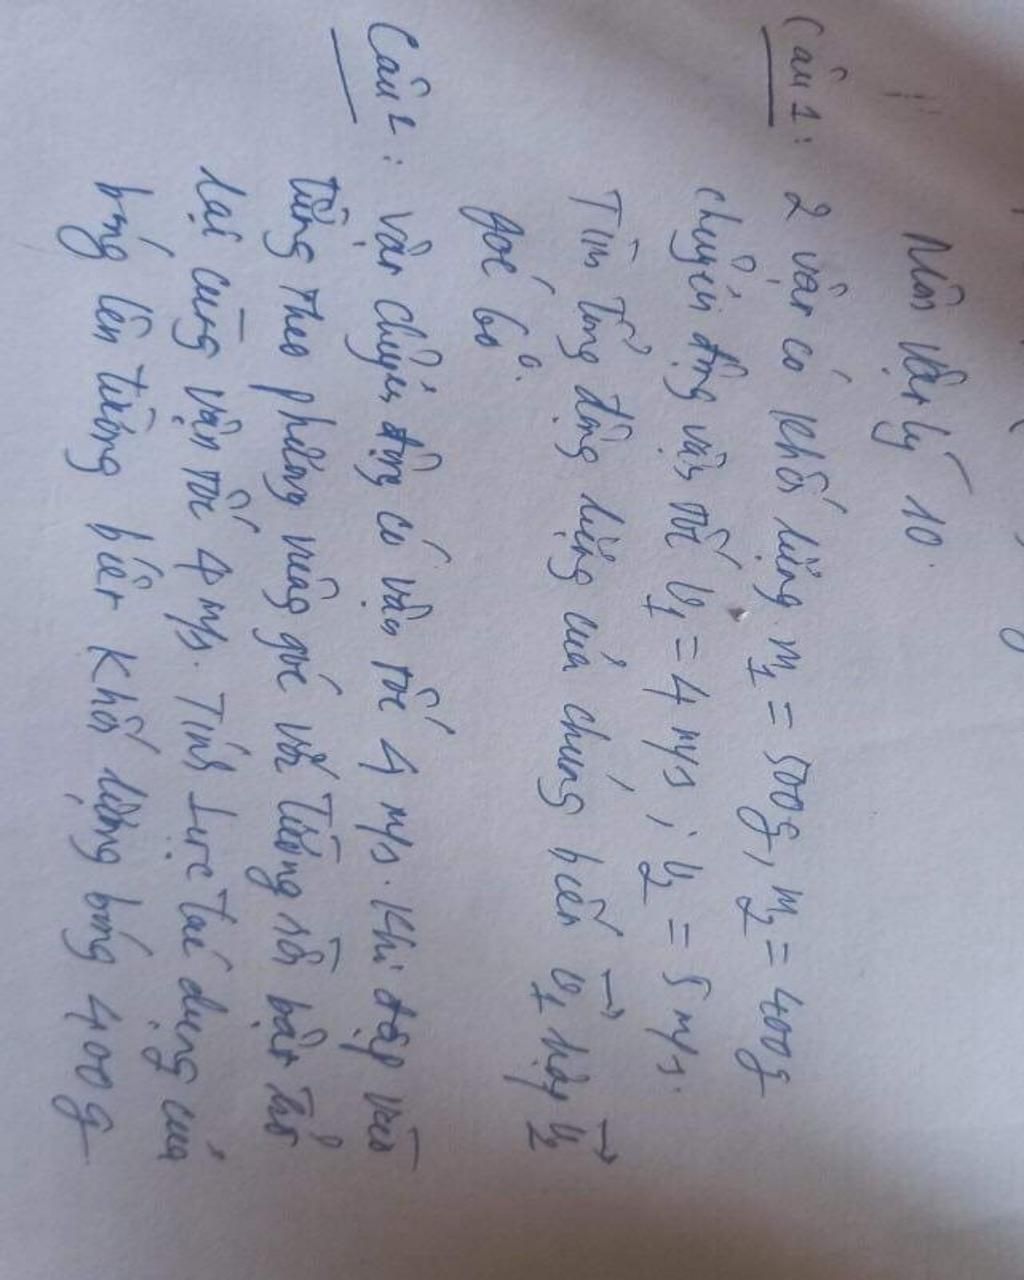 Môn Vật lý 10.
Câu 1: 2 vật có khối lượng m₁ = 500g, m₂ = 400g
chuyển động vận tốc v₁ = 4 m/s ; v₂ = 5 m/s.
Tìm tổng động lượng của chúng biết v₁→ hợp v₂→
góc 60°.
Câu 2: Vật chuyển động có vận tốc 4 m/s. Khi đập vào
tường theo phương vuông góc với tường rồi bật trở
lại cùng vận tốc 4 m/s. Tính Lực tác dụng của
bóng lên tường biết Khối lượng bóng 400g